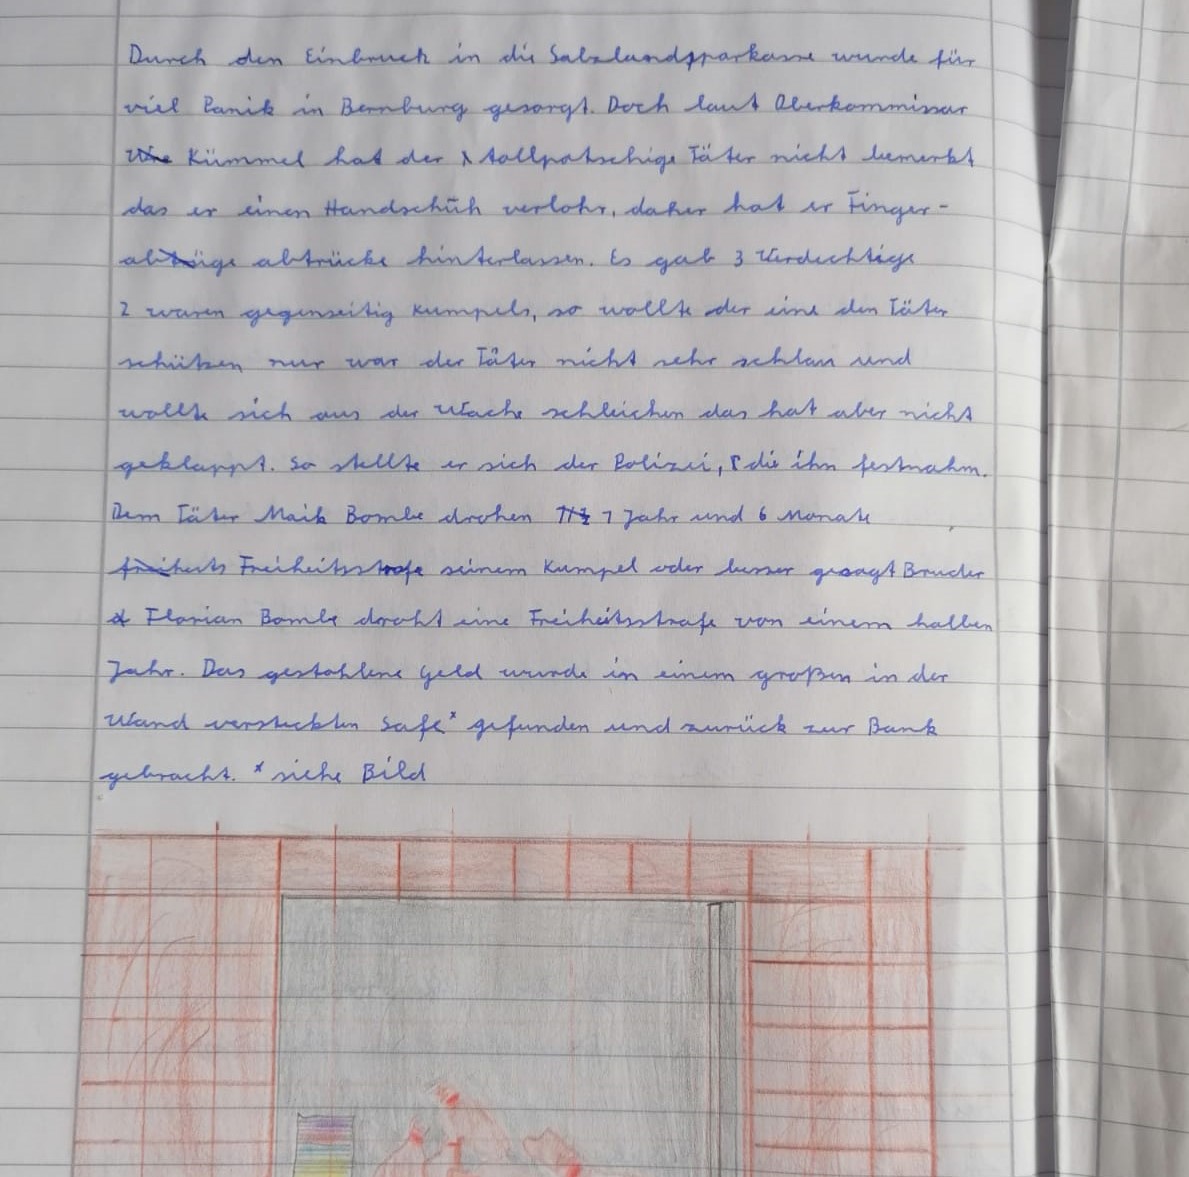 Durch den Einbruch in die Salzlandsparkasse wurde für
viel Panik in Bernburg gesorgt. Doch laut Oberkommissar
Kümmel hat der tollpatschige Täter nicht bemerkt
das er einen Handschuh verlohr, daher hat er Finger-
abtrücke hinterlassen. Es gab 3 Verdechtige
2 waren gegenseitig Kumpels, so wollte der eine den Täter
schützen nur war der Täter nicht sehr schlau und
wollte sich aus der Wache schleichen das hat aber nicht
geklappt. So stellte er sich der Polizei, die ihn festnahm.
Dem Täter Maik Bombe drohen 1 Jahr und 6 Monate
Freiheitsstrafe seinem Kumpel oder besser gesagt Bruder
Florian Bombe droht eine Freiheitsstrafe von einem halben
Jahr. Das gestohlene Geld wurde in einem großen in der
Wand versteckten Safe* gefunden und zurück zur Bank
gebracht. * siehe Bild